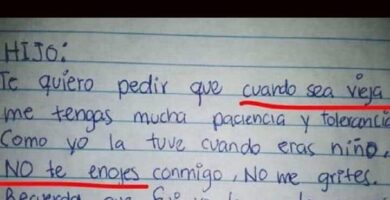 HIJO:
Te quiero pedir que cuando sea vieja
me tengas mucha paciencia y tolerancia
Como yo la tuve cuando eras niño,
NO te enojes conmigo, NO me grites.
Recuerda que